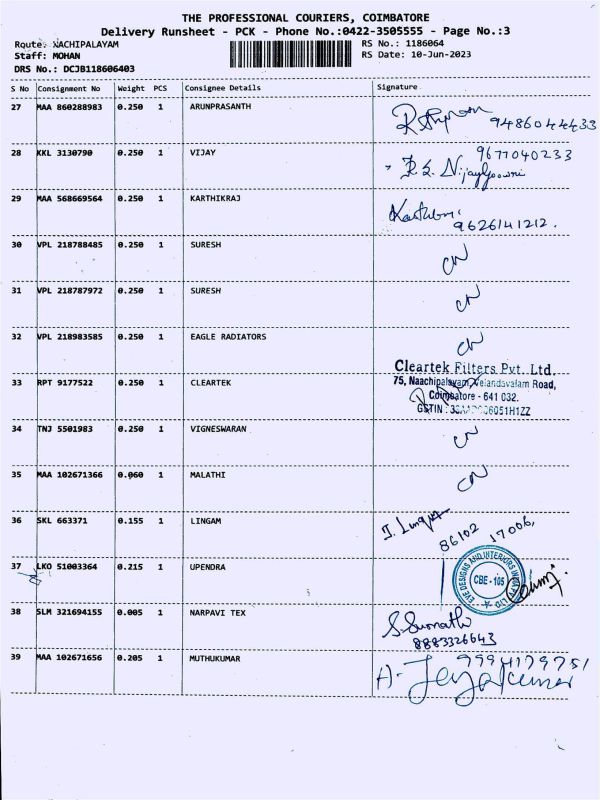 THE PROFESSIONAL COURIERS, COIMBATORE
Delivery Runsheet - PCK - Phone No.:0422-3505555 - Page No.:3
Route: NACHIPALAYAM
RS No.: 1186064
Staff: MOHAN
RS Date: 10-Jun-2023
DRS No.: DCJB118606403
S No Consignment No Weight PCS Consignee Details Signature
27 MAA 860288983 0.250 1 ARUNPRASANTH
9486044433
28 KKL 3130790 0.250 1 VIJAY
9677040233
29 MAA 568669564 0.250 1 KARTHIKRAJ
9626141212.
30 VPL 218788485 0.250 1 SURESH CN
31 VPL 218787972 0.250 1 SURESH CN
32 VPL 218983585 0.250 1 EAGLE RADIATORS CN
Cleartek Filters Pvt. Ltd.
33 RPT 9177522 0.250 1 CLEARTEK 75, Naachipalayam, Velandavalam Road,
Coimbatore - 641 032.
GSTIN :
34 TNJ 5501983 0.250 1 VIGNESWARAN CN
35 MAA 102671366 0.060 1 MALATHI CN
36 SKL 663371 0.155 1 LINGAM
86102 17006,
37 LKO 51003364 0.215 1 UPENDRA EVE DESIGNS AND INTERIORS
CBE - 105
38 SLM 321694155 0.005 1 NARPAVI TEX
8883326643
39 MAA 102671656 0.205 1 MUTHUKUMAR 9994179751
Jeyakumar